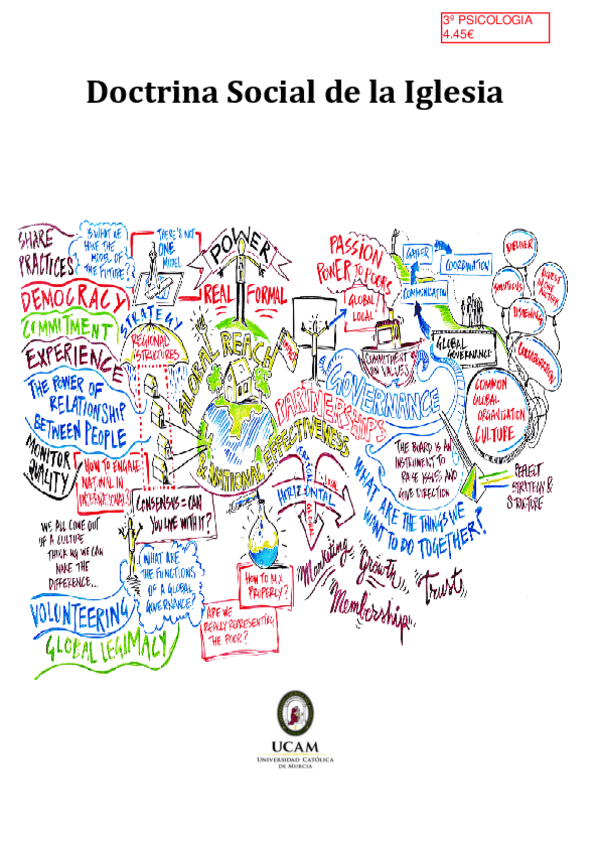 3º PSICOLOGIA
4.45€
Doctrina Social de la Iglesia
SHARE
PRACTICES
IS WHAT WE
HAVE THE
MODEL OF
THE FUTURE?
THERE'S NOT
ONE
MODEL
POWER
REAL FORMAL
DEMOCRACY
COMMITMENT
EXPERIENCE
STRATEGY
REGIONAL
STRUCTURES
THE POWER OF
RELATIONSHIP
BETWEEN PEOPLE
MONITOR
QUALITY
HOW TO ENGAGE
NATIONAL IN
INTERNATIONAL?
GLOBAL REACH
& NATIONAL EFFECTIVENESS
PARTNERSHIPS
CONSENSUS = CAN
YOU LIVE WITH IT?
WE ALL COME OUT
OF A CULTURE
THINKING WE CAN
MAKE THE
DIFFERENCE...
WHAT ARE
THE FUNCTIONS
OF A GLOBAL
GOVERNANCE?
VOLUNTEERING
GLOBAL LEGIMACY
HOW TO MIX
PROPERLY?
ARE WE
REALLY REPRESENTING
THE POOR?
HORIZONTAL
PASSION
POWER TO POORS
GLOBAL
LOCAL
GATHER
COORDINATION
COMMUNICATION
COMMITMENT
ON VALUES
GLOBAL
GOVERNANCE
GOVERNANCE
DELIVER
LISTENING
COLLABORATION
COMMON
GLOBAL
ORGANISATION
CULTURE
THE BOARD IS AN
INSTRUMENT TO
RAISE ISSUES AND
GIVE DIRECTION
REFLECT
STRATEGY &
STRUCTURE
WHAT ARE THE THINGS WE
WANT TO DO TOGETHER?
Marketing
Growth
Trust
Membership
UCAM
UNIVERSIDAD CATÓLICA
DE MURCIA